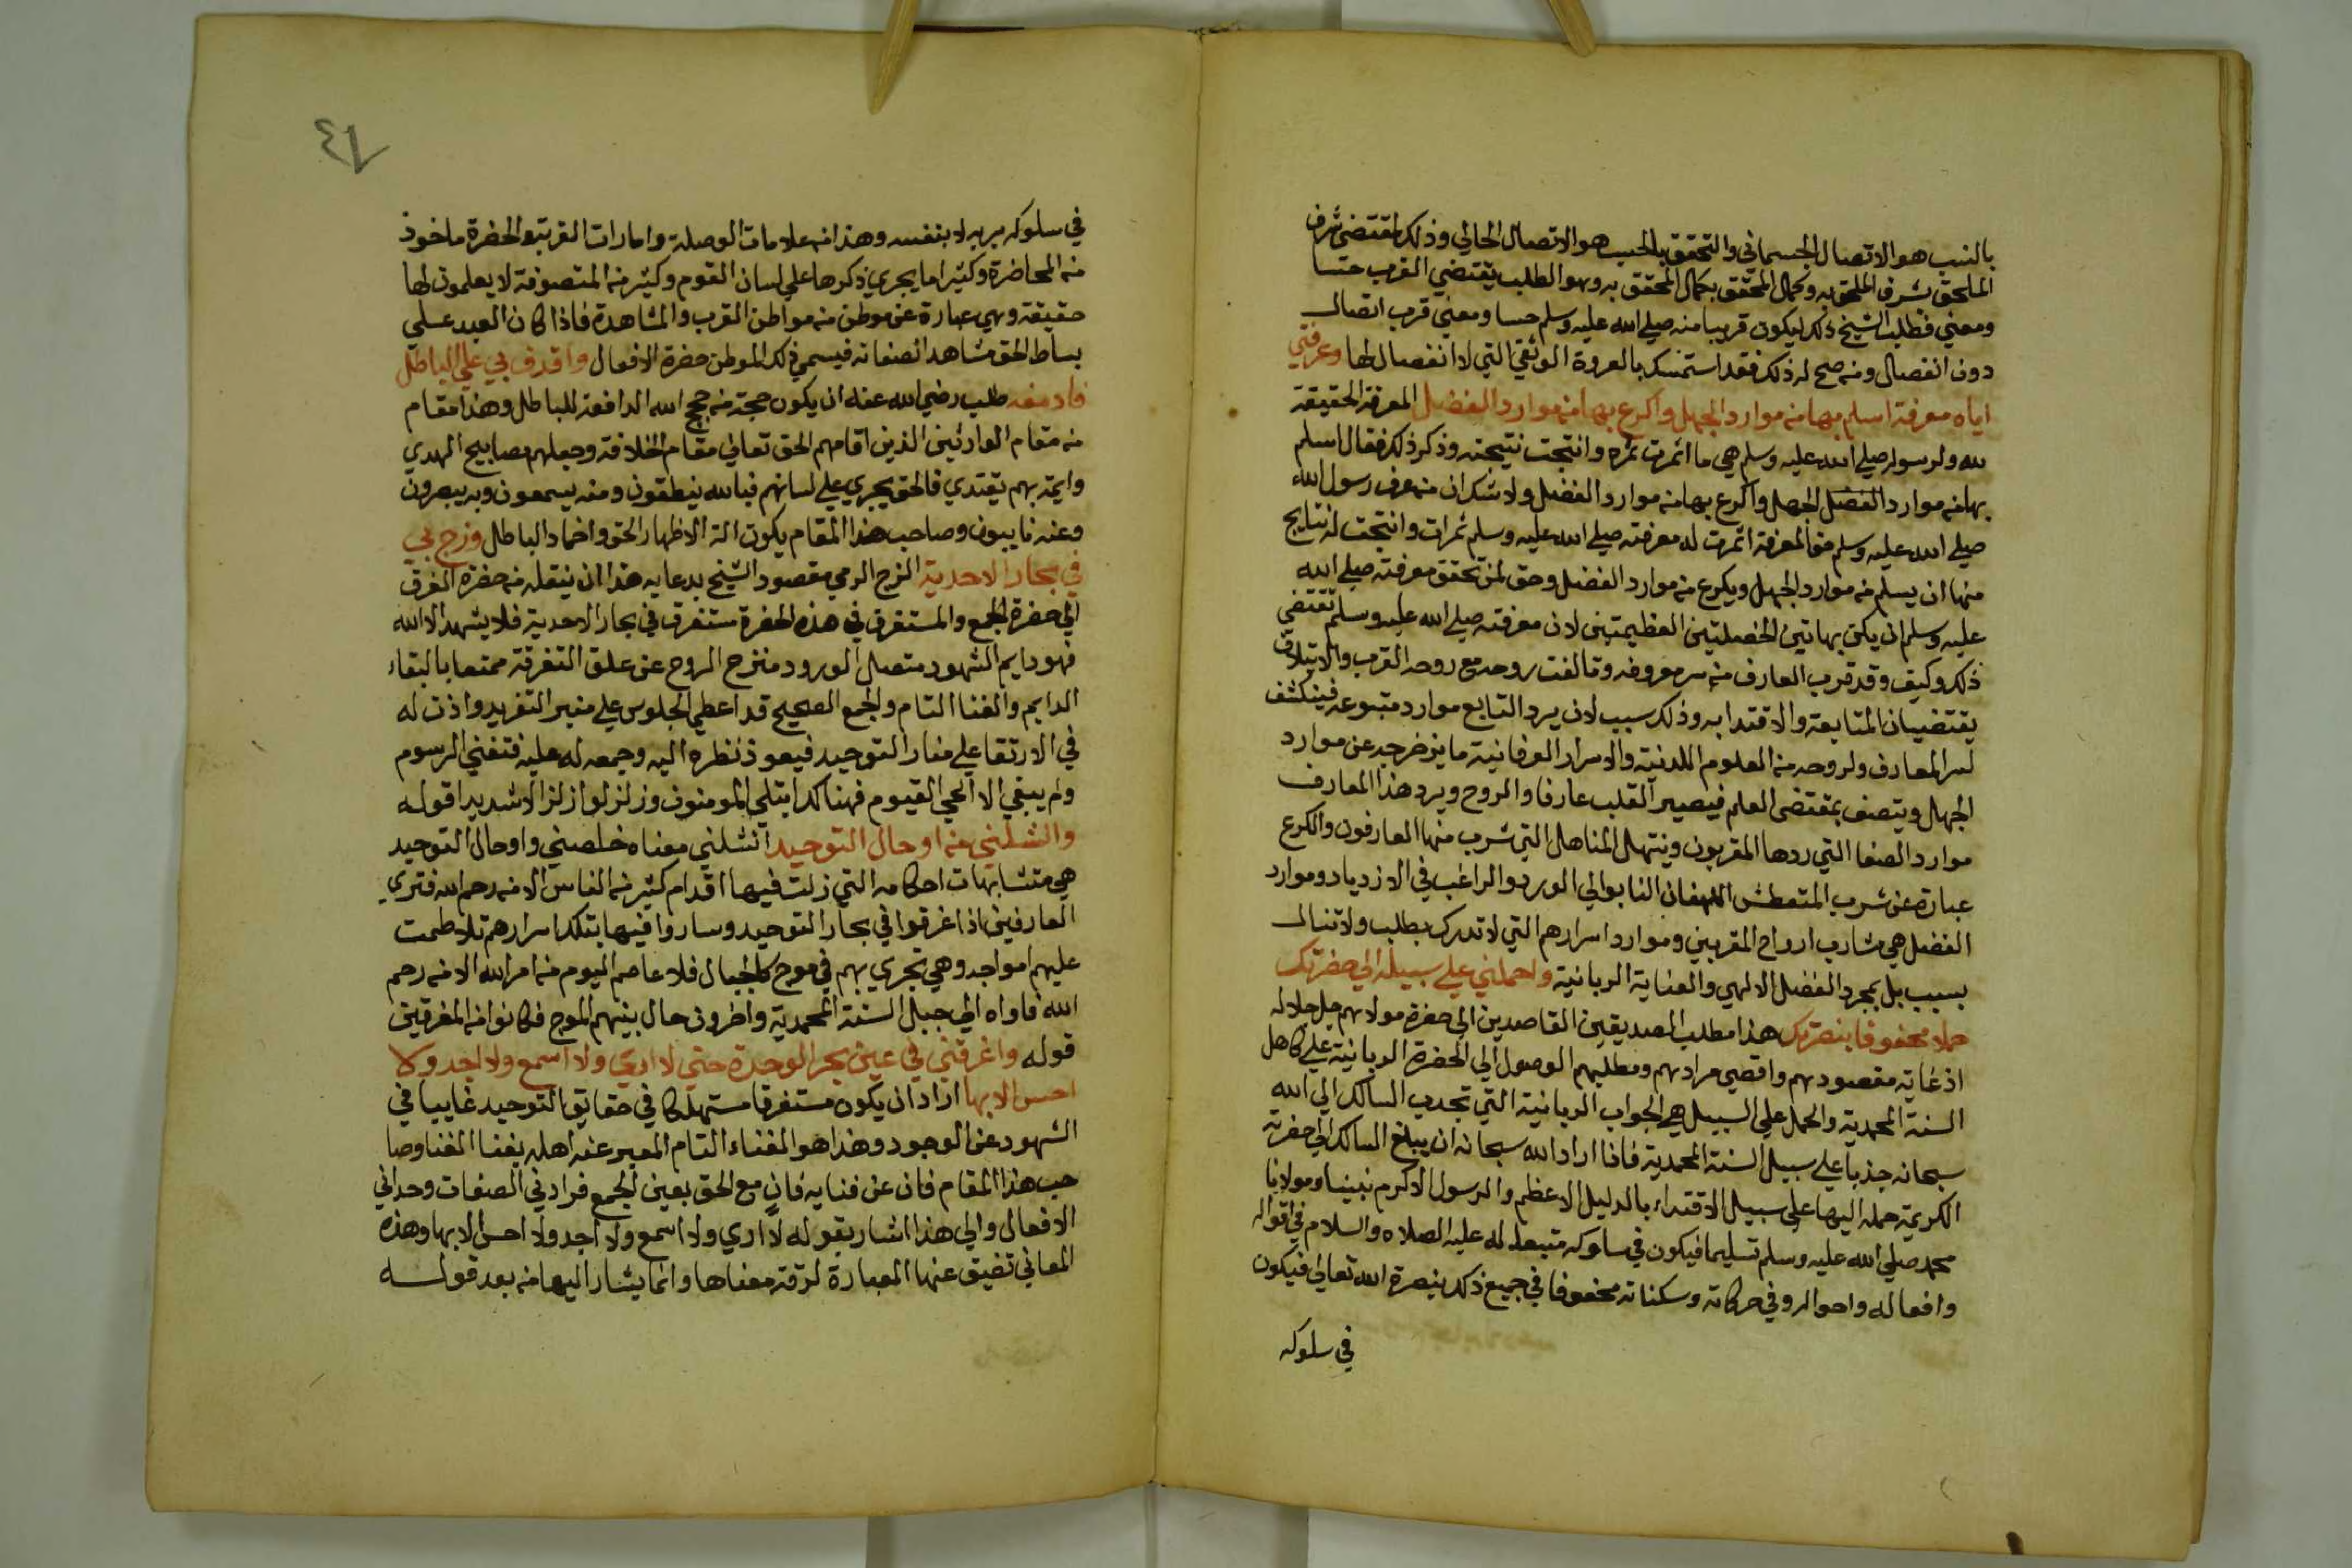 بالنسب هو الاتصال الجسماني والتحقق بالحسب هو الاتصال الحالي وذلك لمقتضى شرف
الملحق بشرف الملحق به وكمال المحقق بكمال المحقق به وهو الطلب يقتضي القرب حسا
ومعني فطلب الشيخ ذلك ليكون قريبا منه صلي الله عليه وسلم حسا ومعني قرب اتصال
دون انفصال ومن صح له ذلك فقد استمسك بالعروة الوثقي التي لا انفصال لها وعرفني
اياه معرفة اسلم بها من موارد الجهل واكرع بها من موارد الفضل المعرفة الحقيقة
لله ولرسوله صلي الله عليه وسلم هي ما اثمرت ثمره وانتجت نتيجته وذكر ذلك فقال اسلم
بها من موارد الفضل الجهل واكرع بها من موارد الفضل ولا شك ان من عرف رسول الله
صلي الله عليه وسلم حق المعرفة اثمرت له معرفته صلي الله عليه وسلم ثمرات وانتجت له نتايج
منها ان يسلم من موارد الجهل ويكرع من موارد الفضل وحق لمن تحقق معرفته صلي الله
عليه وسلم ان يكن بهاتين الخصلتين العظيمتين لان معرفته صلي الله عليه وسلم تقتضي
ذلك وكيف وقد قرب العارف من سر معروفه وتالفت روحه مع روحه القرب والايتلاف
يقتضيان المتابعة والاقتدا به وذلك سبب لان يرد التابع موارد متبوعه فينكشف
لسر العارف ولروحه من العلوم اللدنية والاسرار العرفانية ما يزخرجه عن موارد
الجهل ويتصف بمقتضى العلم فيصير القلب عارفا والروح ويرد هذا العارف
موارد الصفا التي ردها المقربون وينتهل المناهل التي شرب منها العارفون والكرع
عبارة عن شرب المتعطش اللهفان التا بوالي الورد والراغب في الازدياد وموارد
الفضل هي مشارب ارواح المقربين وموارد اسرارهم التي لا تدرك بطلب ولا تنال
بسبب بل بمجرد الفضل الالهي والعناية الربانية واحملني علي سبيله الي حضرتك
حملا محفوفا بنصرتك هذا مطلب الصديقين القاصدين الي حضرة مولاهم جل جلاله
اذ غاية مقصودهم واقصي مرادهم ومطلبهم الوصول الي الحضرة الربانية علي كاهل
السنة المحمدية والحمل علي السبيل هي الجواب الربانية التي تجدب السالك الي الله
سبحانه جذبا علي سبيل السنة المحمدية فاذا اراد الله سبحانه ان يبلغ السالك الي حضرته
الكريمة حمله اليها علي سبيل الاقتداء بالدليل الاعظم والرسول الاكرم نبينا ومولانا
محمد صلي الله عليه وسلم تسليما فيكون في سلوكه متبعا له عليه الصلاه والسلام في اقواله
وافعاله واحواله وفي حركاته وسكناته محفوفا في جميع ذلك بنصرة الله تعالي فيكون
في سلوكه
٤٧
في سلوكه بربه لا بنفسه وهذا من علامات الوصلة وامارات القربة والحضرة ماخوذ
من المحاضرة وكثيرا ما يجري ذكرها علي لسان القوم وكثير من المتصوفة لا يعلمون لها
حقيقة وهي عبارة عن موطن من مواطن القرب والمشاهدة فاذا كان العبد علي
بساط الحق مشاهدا لصفاته فيسمي ذلك الموطن حضرة الافعال واقذف بي علي الباطل
فادمغه طلب رضي الله عنه ان يكون حجة من حجج الله الدافعة للباطل وهذا مقام
من مقام الوارثين الذين اقامهم الحق تعالي مقام الخلافة وجعلهم مصابيح الهدي
وايمة بهم يقتدي فالحق يجري علي لسانهم فبالله ينطقون ومنه يسمعون وبه يبصرون
وعنه نايبون وصاحب هذا المقام يكون الة لاظهار الحق واخماد الباطل وزج بي
في بحار الاحدية الزج الرمي مقصود الشيخ بدعايه هذا ان ينقله من حضرة الفرق
الي حضرة الجمع والمستغرق في هذه الحضرة مستغرق في بحار الاحدية فلا يشهد الا الله
فهو دايم الشهود متصل الورود منزح الروح عن علق التفرقة ممتعا بالبقاء
الدايم والفنا التام والجمع الصحيح قد اعطي الجلوس علي منبر التفريد واذن له
في الارتقا علي منار التوحيد فيعود نظره اليه وجمعه له عليه فتفني الرسوم
ولم يبقي الا الحي القيوم فهناك ابتلي المومنون وزلزلوا زلزالا شديدا قوله
وانشلني من اوحال التوحيد انشلني معناه خلصني واوحال التوحيد
هي متشابهات احكامه التي زلت فيها اقدام كثير من الناس الا من رحم الله فتري
العارفين اذا غرقوا في بحار التوحيد وساروا فيها بتلك اسرارهم تلاطمت
عليهم امواجه وهي تجري بهم في موج كالجبال فلا عاصم اليوم من امر الله الا من رحم
الله فاواه الي جبل السنة المحمدية واخرون حال بينهم الموج فكانوا من المغرقين
قوله واغرقني في عين بحر الوحدة حتي لا اري ولا اسمع ولا اجد ولا
احس الا بها اراد ان يكون مستغرقا مستهلكا في حقايق التوحيد غايبا في
الشهود عن الوجود وهذا هو الفناء التام المعبر عنه اهله بفنا الفنا وصا
حب هذا المقام فان عن فنايه فان مع الحق بعين الجمع فرادني الصفات وحداني
الافعال والي هذا اشار بقوله لا اري ولا اسمع ولا اجد ولا احس الا بها وهذه
المعاني تضيق عنها العبارة لرقة معناها وانما يشار اليها من بعد قوله